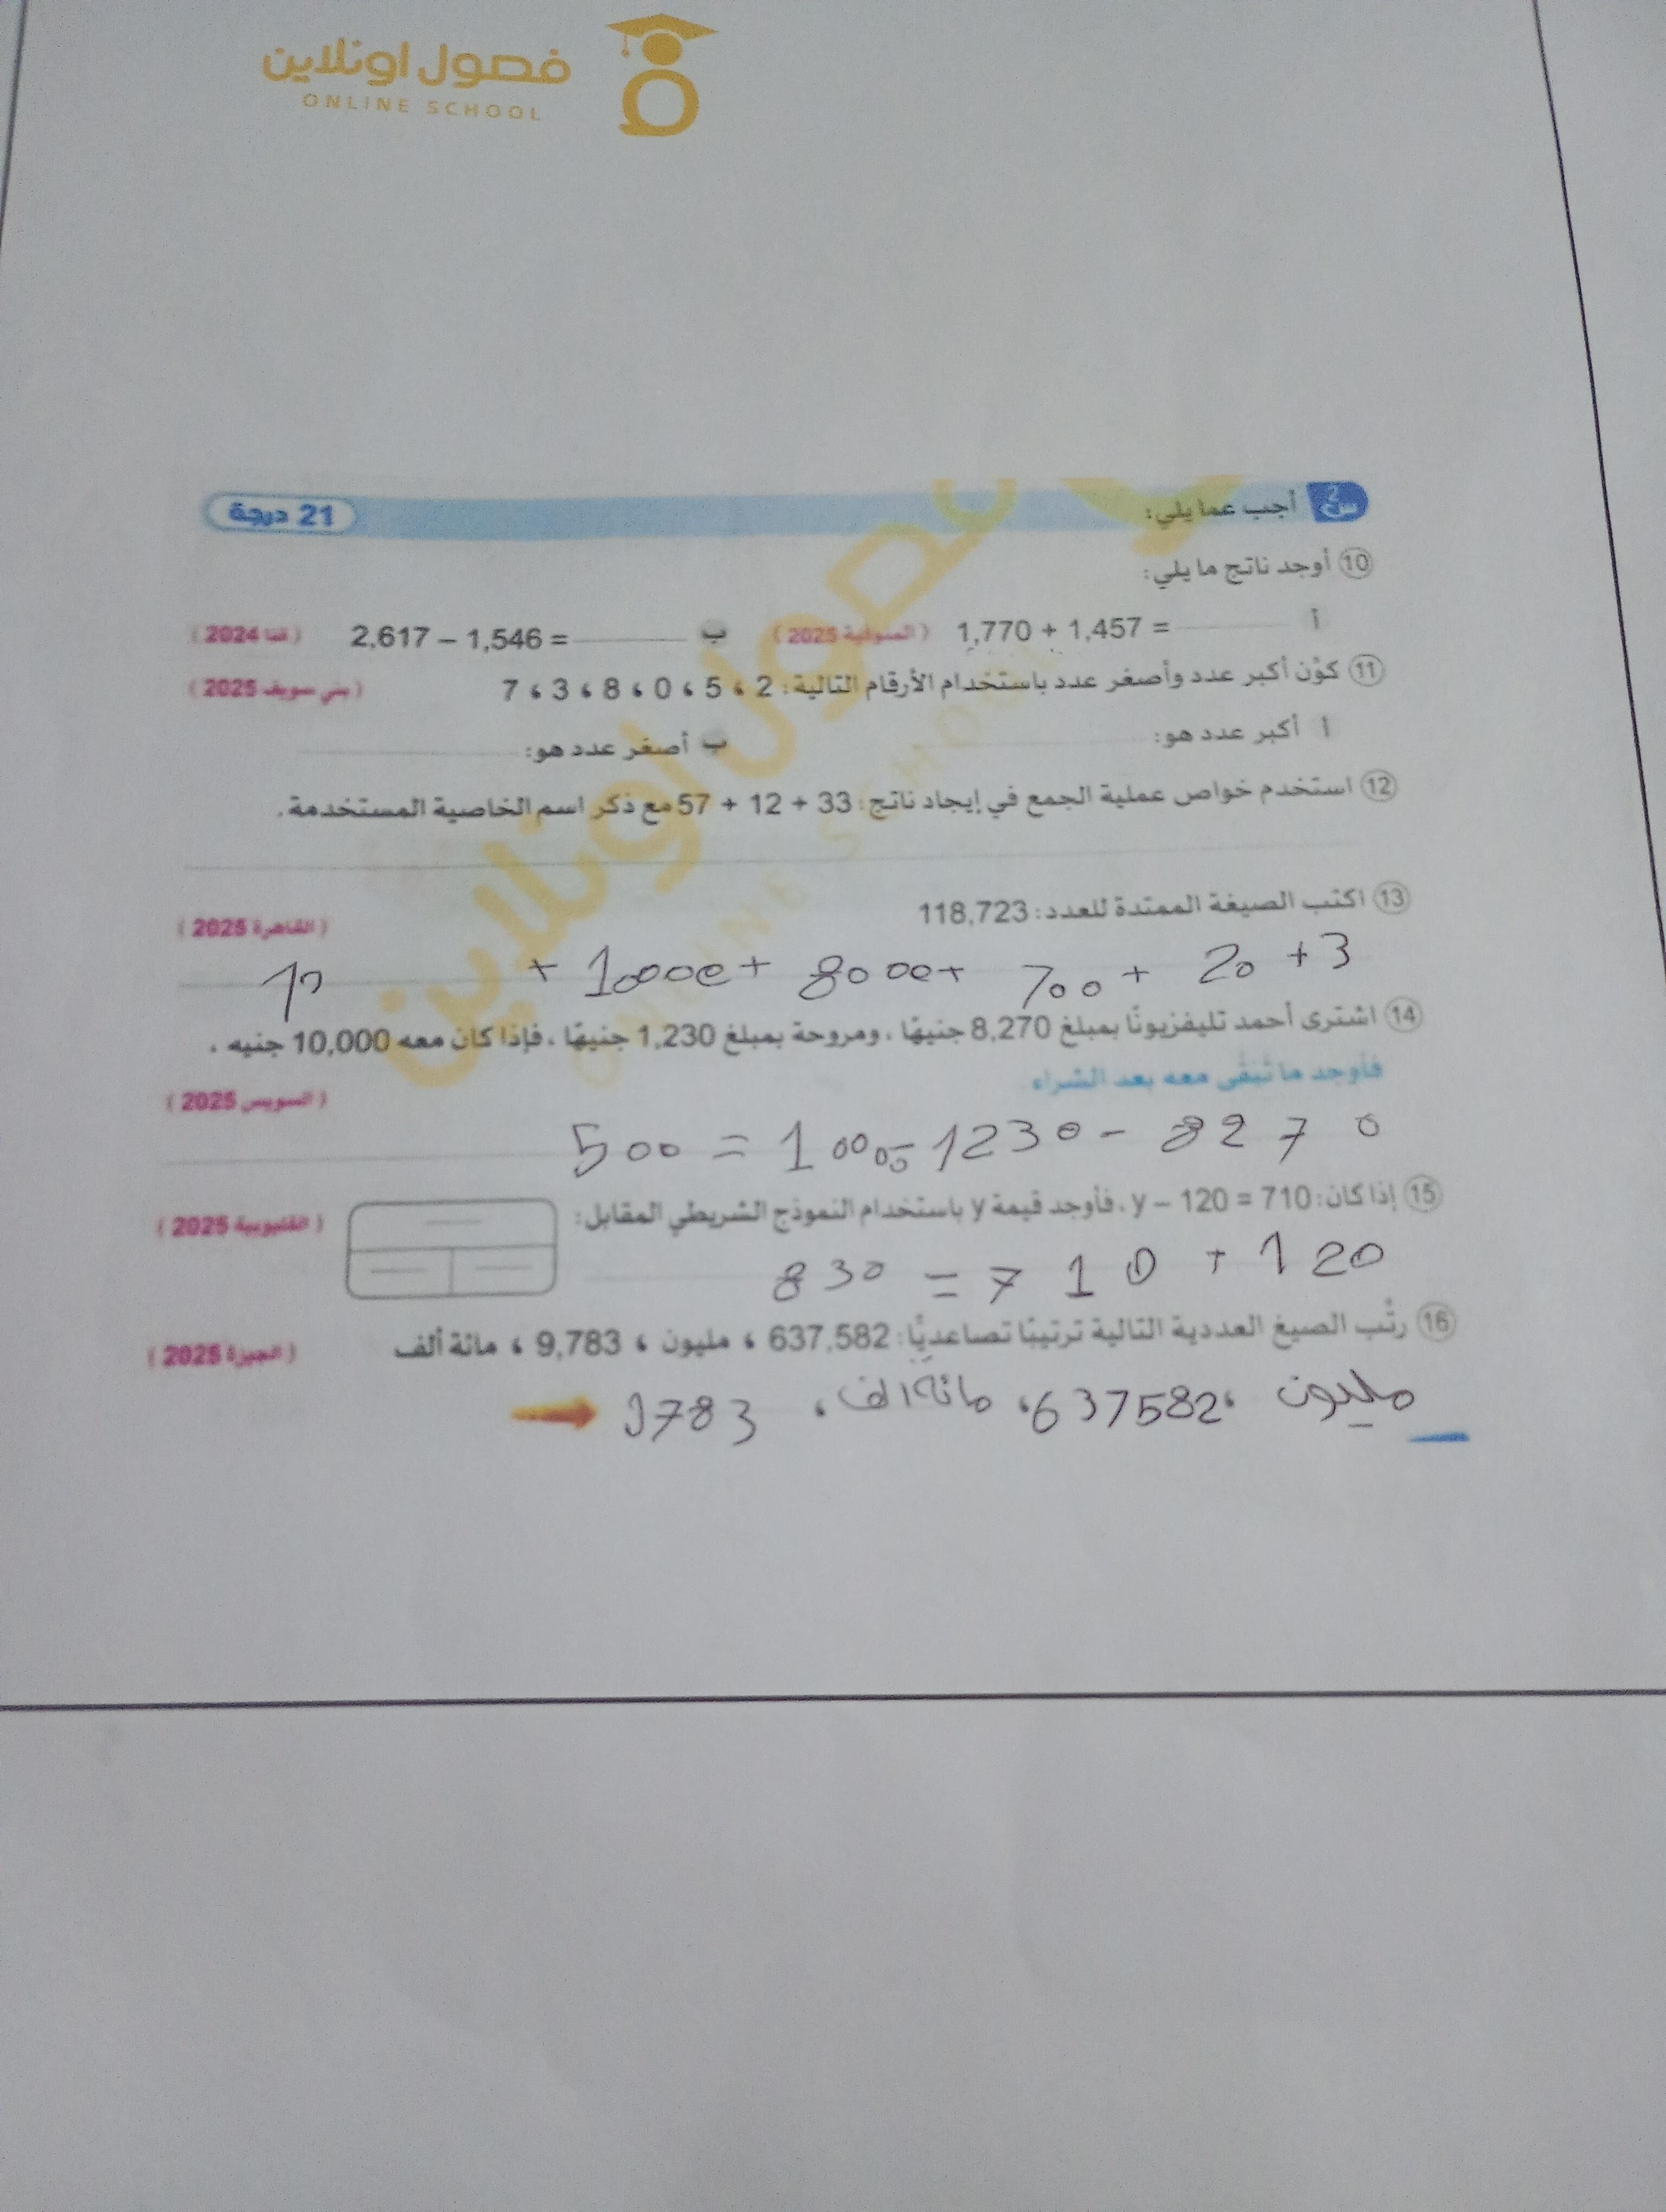 فصول اونلاين
ONLINE SCHOOL
س2 أجب عما يلي: 21 درجة
10 أوجد ناتج ما يلي:
أ 1,770 + 1,457 = (المنوفية 2025) ب 2,617 – 1,546 = (قنا 2024)
11 كوّن أكبر عدد وأصغر عدد باستخدام الأرقام التالية: 2 ، 5 ، 0 ، 8 ، 3 ، 7 (بني سويف 2025)
أ أكبر عدد هو: ب أصغر عدد هو:
12 استخدم خواص عملية الجمع في إيجاد ناتج: 33 + 12 + 57 مع ذكر اسم الخاصية المستخدمة.
13 اكتب الصيغة الممتدة للعدد: 118,723 (القاهرة 2025)
+ 10000 + 8000 + 700 + 20 + 3
14 اشترى أحمد تليفزيونًا بمبلغ 8,270 جنيهًا، ومروحة بمبلغ 1,230 جنيهًا، فإذا كان معه 10,000 جنيه،
فأوجد ما تبقى معه بعد الشراء (السويس 2025)
500 = 10000 - 1230 - 8270
15 إذا كان: y – 120 = 710، فأوجد قيمة y باستخدام النموذج الشريطي المقابل: (القليوبية 2025)
830 = 710 + 120
16 رتّب الصيغ العددية التالية ترتيبًا تصاعديًّا: 637,582 ، مليون ، 9,783 ، مائة ألف (الجيزة 2025)
مليون ، 637582 ، مائة الف ، 9783
فصول اونلاين
ONLINE SCHOOL